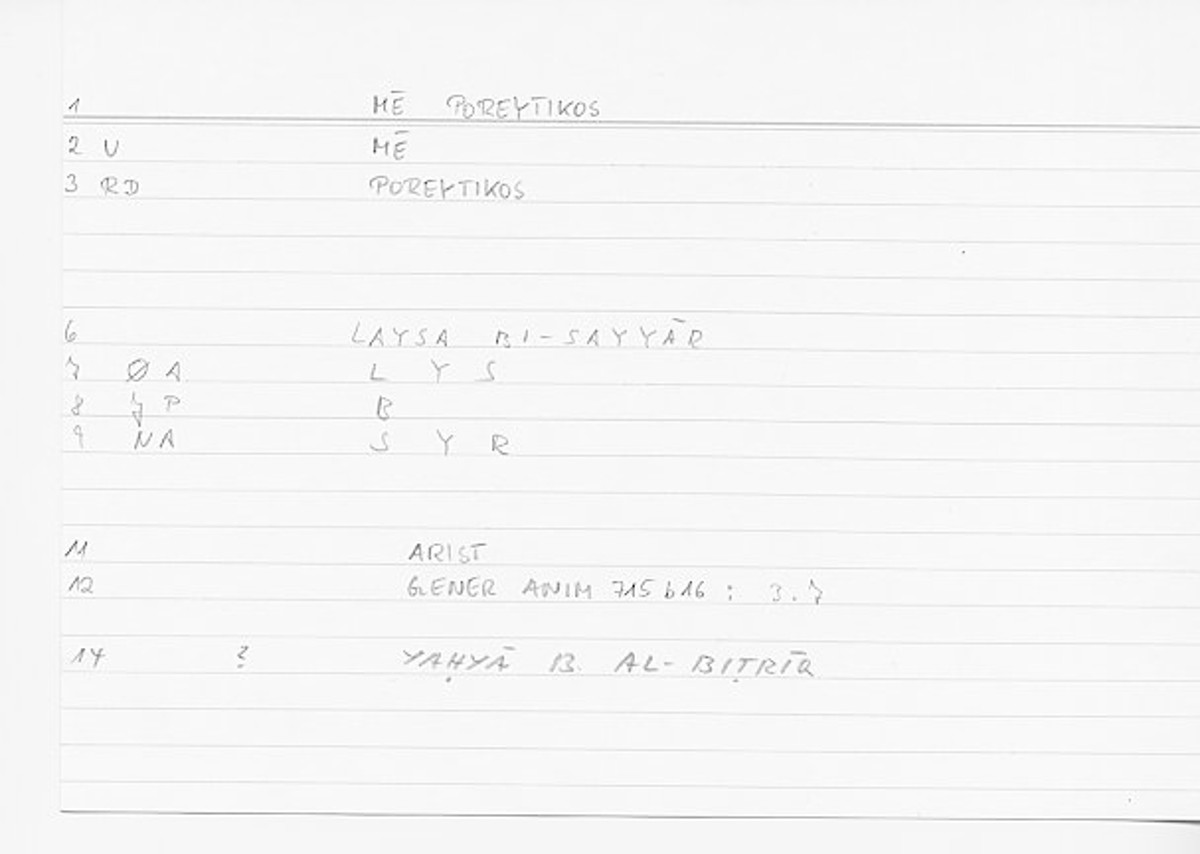 1 MĒ POREYTIKOS
2 U MĒ
3 RD POREYTIKOS
6 LAYSA BI-SAYYĀR
7 Ø A L Y S
8 7 P B
9 NA S Y R
11 ARIST
12 GENER ANIM 715 b 16 : 3.7
14 ? YAḤYĀ B. AL-BIṬRĪQ